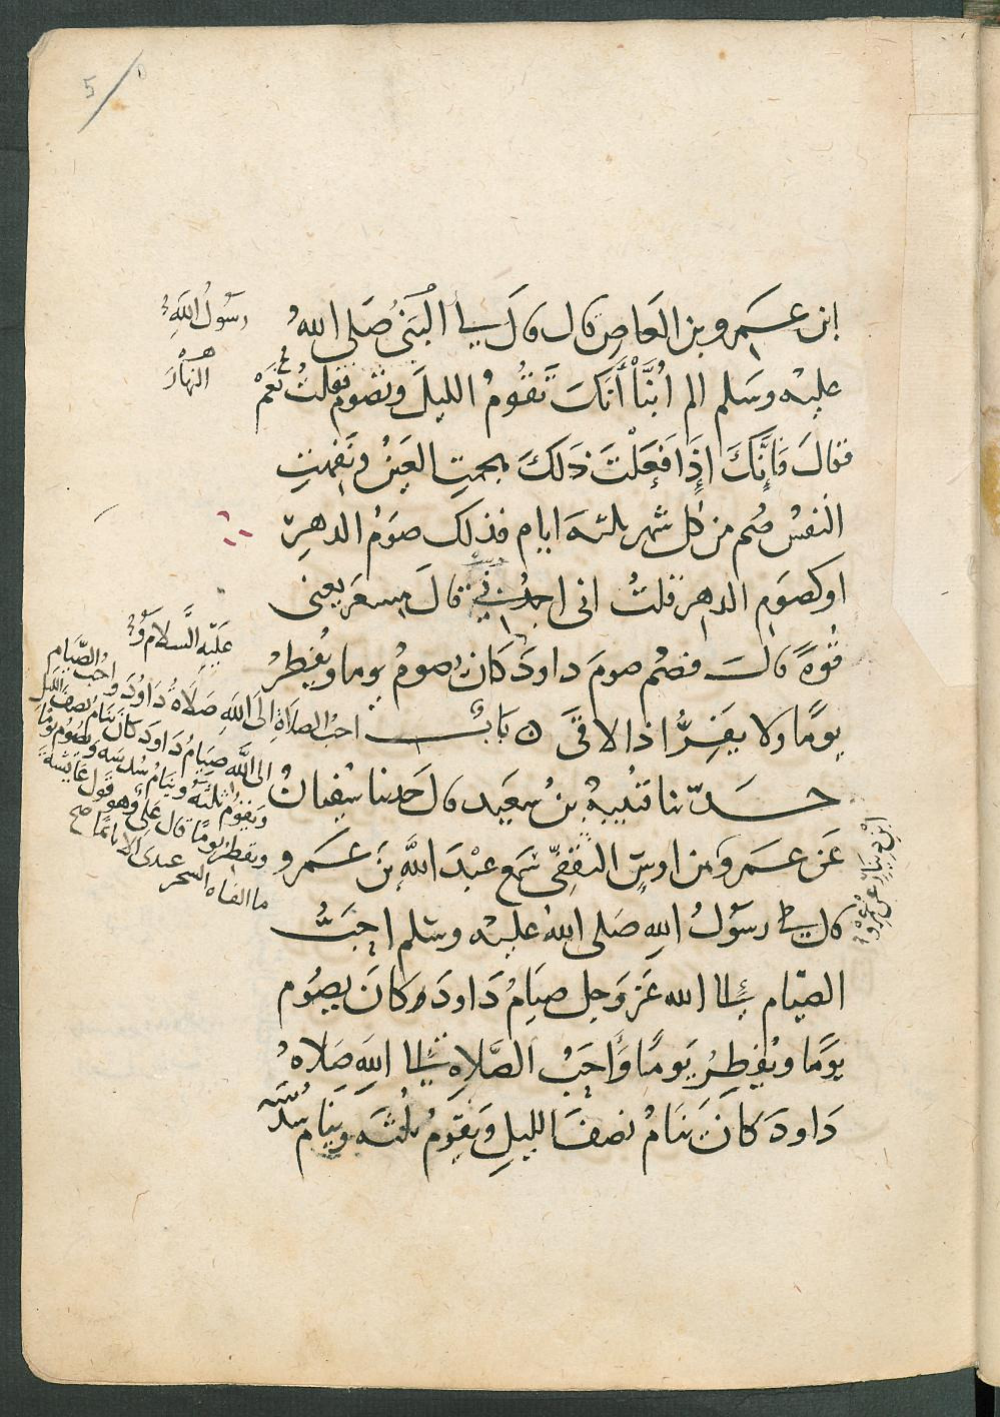 5
ابن عمرو بن العاص قال قال لي النبي صلى الله
رسول الله
عليه وسلم الم انبأ أنك تقوم الليل وتصوم فقلت نعم
النهار
فقال فانك إذا فعلت ذلك هجمت العين ونفهت
النفس صم من كل شهر ثلثة ايام فذلك صوم الدهر
او كصوم الدهر قلت اني اجد بي قال مسعر يعني
قوة قال فصم صوم داود كان يصوم يوما ويفطر
عليه السلام و
يوما ولا يفر اذا لاقى ه باب احب الصلاة الى الله صلاة داود واحب الصيام
الى الله صيام داود كان ينام نصف الليل
ويقوم ثلثه وينام سدسه ويصوم يوما
ويفطر يوما قال علي وهو قول عايشة
ما الفاه السحر عندي الا نائما صح
حدثنا قتيبة بن سعيد قال حدثنا سفيان
عن عمرو بن اوس الثقفي سمع عبد الله بن عمرو
ابن دينار عن عمرو
قال لي رسول الله صلى الله عليه وسلم احب
الصيام الى الله عز وجل صيام داود وكان يصوم
يوما ويفطر يوما وأحب الصلاة الى الله صلاة
داود كان ينام نصف الليل ويقوم ثلثه وينام سدسه